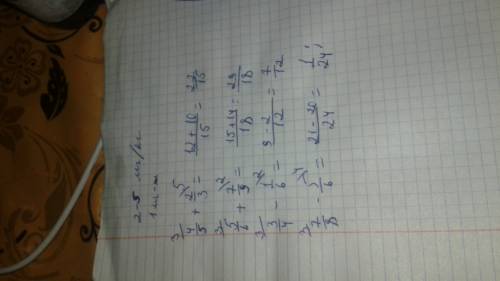 1 ш-т
4/5 + 2/3 = (12+10)/15 = 22/15
5/6 + 7/9 = (15+14)/18 = 29/18
3/4 - 1/6 = (9-2)/12 = 7/12
7/8 - 5/6 = (21-20)/24 = 1/24;